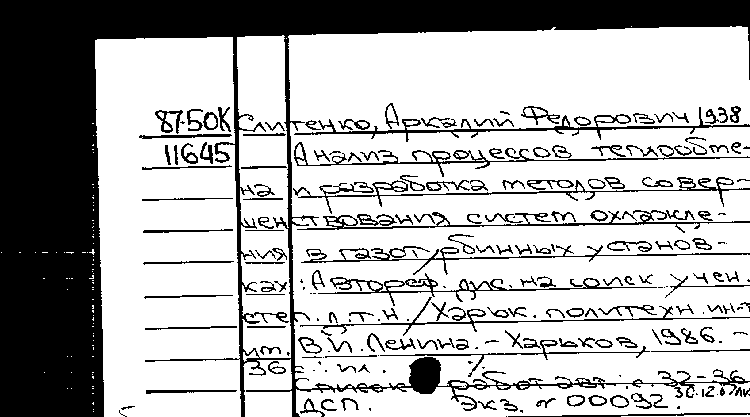 87-50К Слитенко, Аркадий Федорович, 1938
11645 Анализ процессов теплообме-
на и разработка методов совер-
шенствования систем охлажде-
ния в газотурбинных установ-
ках: Автореф. дис. на соиск учен.
степ. д.т.н. / Харьк. политехн. ин-т
им. В.И. Ленина. - Харьков, 1986. -
36 с.: ил.
Список работ авт.: с. 32-36
ДСП. Экз. № 00092